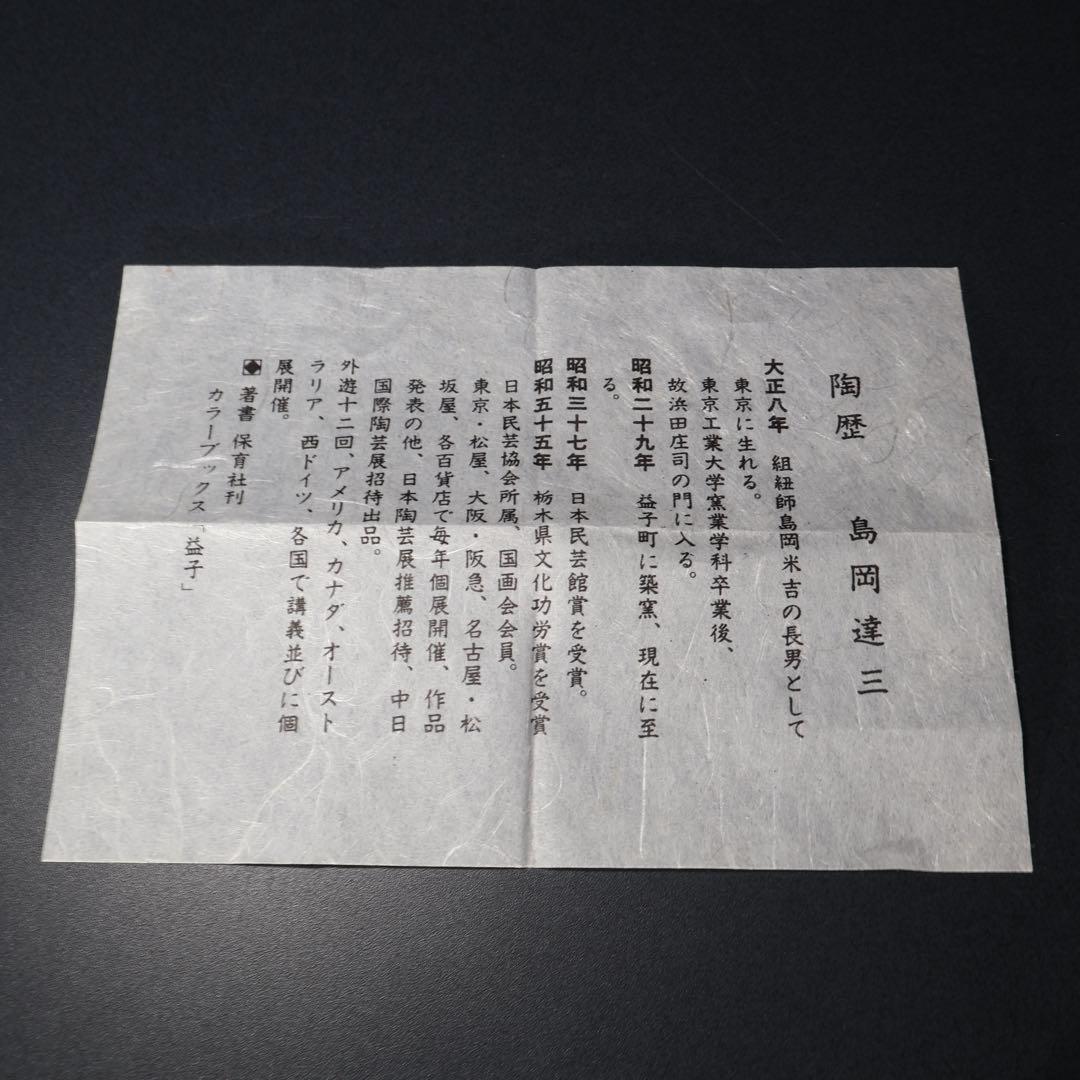 陶歴　島岡達三
大正八年　組紐師島岡米吉の長男として
東京に生れる。
東京工業大学窯業学科卒業後、
故浜田庄司の門に入る。
昭和二十九年　益子町に築窯、現在に至
る。
昭和三十七年　日本民芸館賞を受賞。
昭和五十五年　栃木県文化功労賞を受賞
日本民芸協会所属、国画会会員。
東京・松屋、大阪・阪急、名古屋・松
坂屋、各百貨店で毎年個展開催、作品
発表の他、日本陶芸展推薦招待、中日
国際陶芸展招待出品。
外遊十二回、アメリカ、カナダ、オースト
ラリア、西ドイツ、各国で講義並びに個
展開催。
◆著書 保育社刊
カラーブックス「益子」